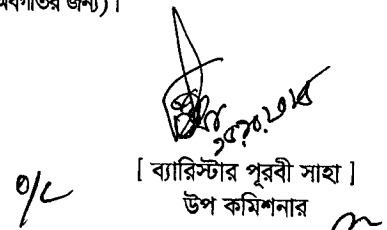 অবগতির জন্য)।
[ ব্যারিস্টার পূরবী সাহা ]
উপ কমিশনার